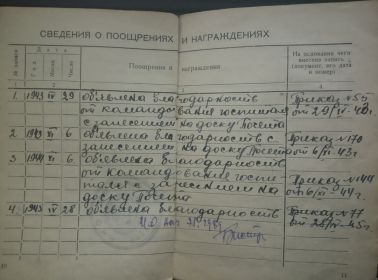 СВЕДЕНИЯ О ПООЩРЕНИЯХ И НАГРАЖДЕНИЯХ
№ записи
Дата
Год
Месяц
Число
Поощрения и награждения
На основании чего внесена запись (документ, его дата и номер)
1. 1943 IV 29 объявлена благодарность
от командования госпиталя
с занесением на доску Почета
Приказ №55
от 29/IV-43г
2. 1943 VI 6 объявлена благодарность с
занесением на доску Почета
Приказ №170
от 6/VI-43г.
3. 1944 VI 6 объявлена благодарность
от командования госпи-
таля с занесением на
доску Почета
Приказ №144
от 6/VI-44г.
4. 1945 IV 28 объявлена благодарность
Приказ №77
от 28/IV-45г
10
11